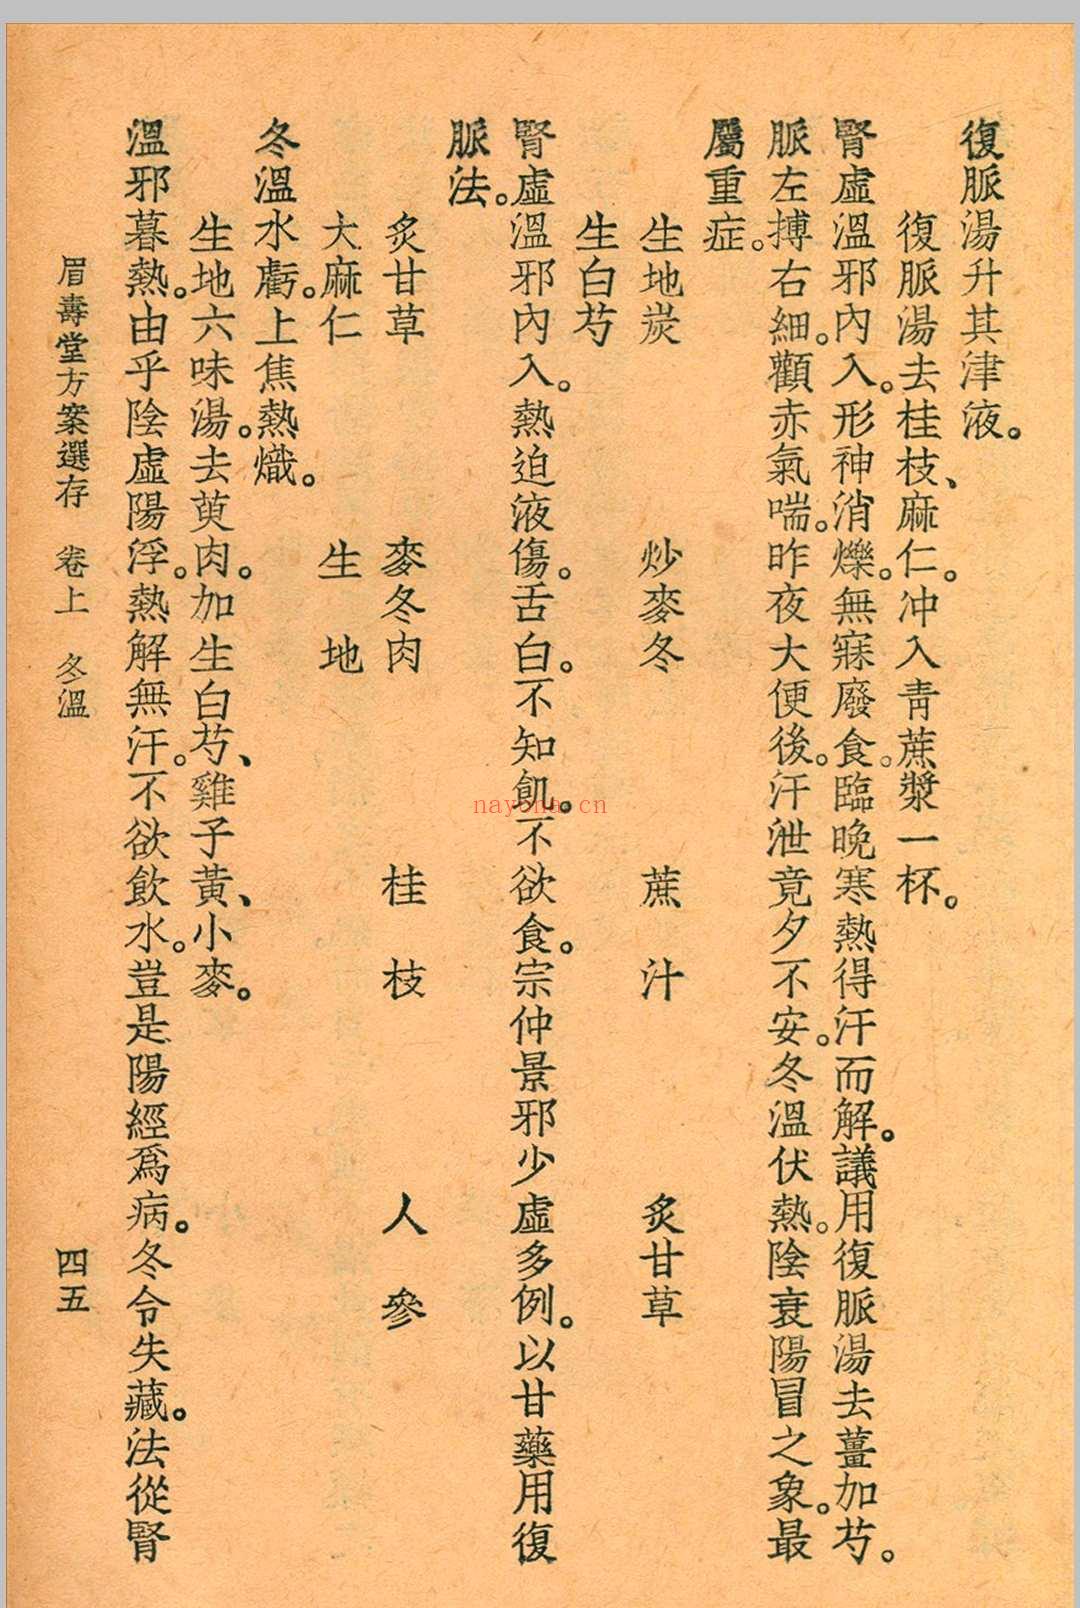 復脈湯升其津液。
復脈湯去桂枝、麻仁。冲入青蔗漿一杯。
腎虛溫邪內入。形神消爍。無寐廢食。臨晚寒熱得汗而解。議用復脈湯去薑加芍。
脈左搏右細。顴赤氣喘。昨夜大便後。汗泄竟夕不安。冬溫伏熱。陰衰陽冒之象。最
屬重症。
生地炭 炒麥冬 蔗汁 炙甘草
生白芍
腎虛溫邪內入。熱迫液傷。舌白。不知飢。不欲食。宗仲景邪少虛多例。以甘藥用復
脈法。
炙甘草 麥冬肉 桂枝 人參
大麻仁 生地
冬溫水虧。上焦熱熾。
生地六味湯。去萸肉。加生白芍、雞子黃、小麥。
溫邪暮熱。由乎陰虛陽浮。熱解無汗。不欲飲水。豈是陽經爲病。冬令失藏。法從腎
眉壽堂方案選存 卷上 冬溫 四五
nayona.cn